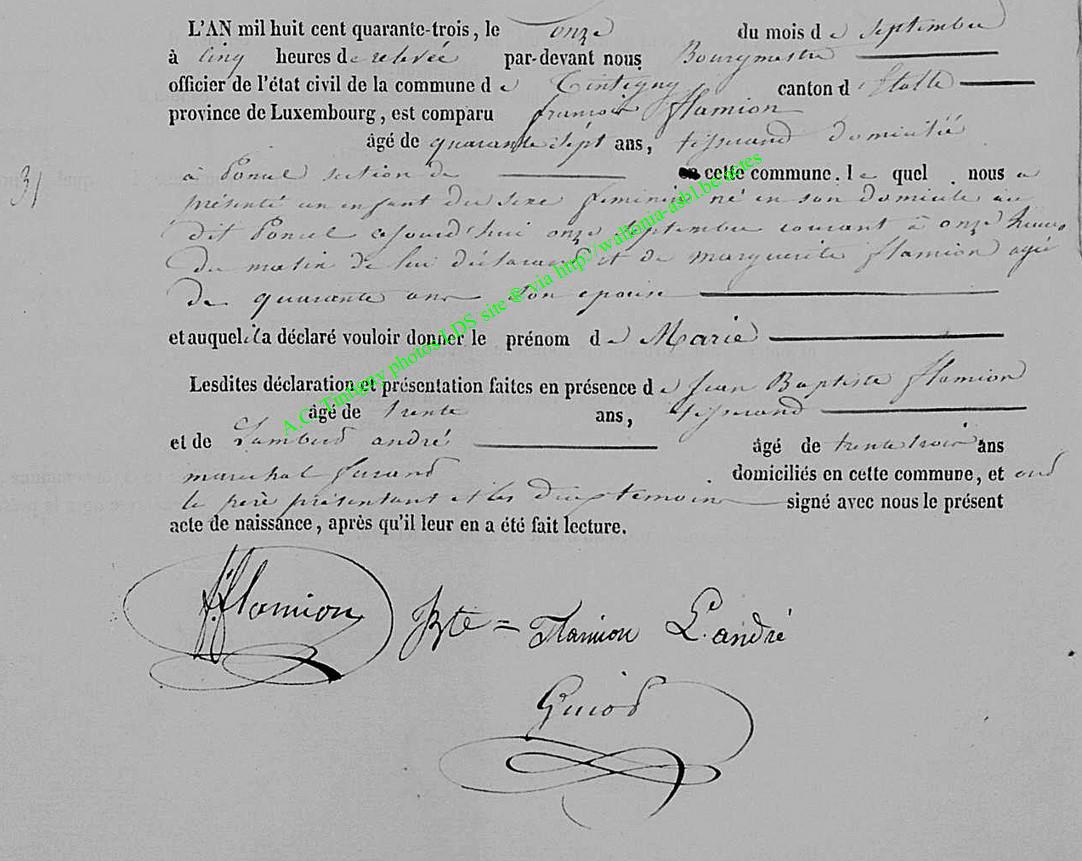 L'AN mil huit cent quarante-trois, le onze du mois de septembre
à cinq heures de relevée par-devant nous Bourgmestre
officier de l'état civil de la commune de Tintigny canton d'Etalle
province de Luxembourg, est comparu françois flamion
âgé de quarante sept ans, tisserand domicilié
31
à Poncel section de cette commune. le quel nous a
présenté un enfant du sexe féminin né en son domicile au
dit Poncel cejourd'hui onze septembre courant à onze heures
du matin de lui déclarant et de marguerite flamion agée
de quarante ans son épouse
et auquel il a déclaré vouloir donner le prénom de Marie
Lesdites déclaration et présentation faites en présence de Jean Baptiste flamion
âgé de trente ans, tisserand
et de Lambert andré âgé de trente trois ans
marechal ferand domiciliés en cette commune, et ont
le père présentant et les deux temoins signé avec nous le présent
acte de naissance, après qu'il leur en a été fait lecture.
A.C. Tintigny photos LDS site © via http://wallonia-asbl.be/actes
f. flamion JBte = Flamion L. andré
Guiot